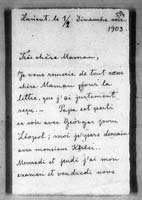 Lorient, le 1/2 Dimanche soir
1903.
Très chère Maman,
Je vous remercie de tout cœur
chère Maman pour la
lettre, que j'ai justement
reçu. — Papa est parti
ce soir avec Georges pour
moi je pars demain
avec monsieur
Mercredi et jeudi j'ai mon
examen et vendredi nous